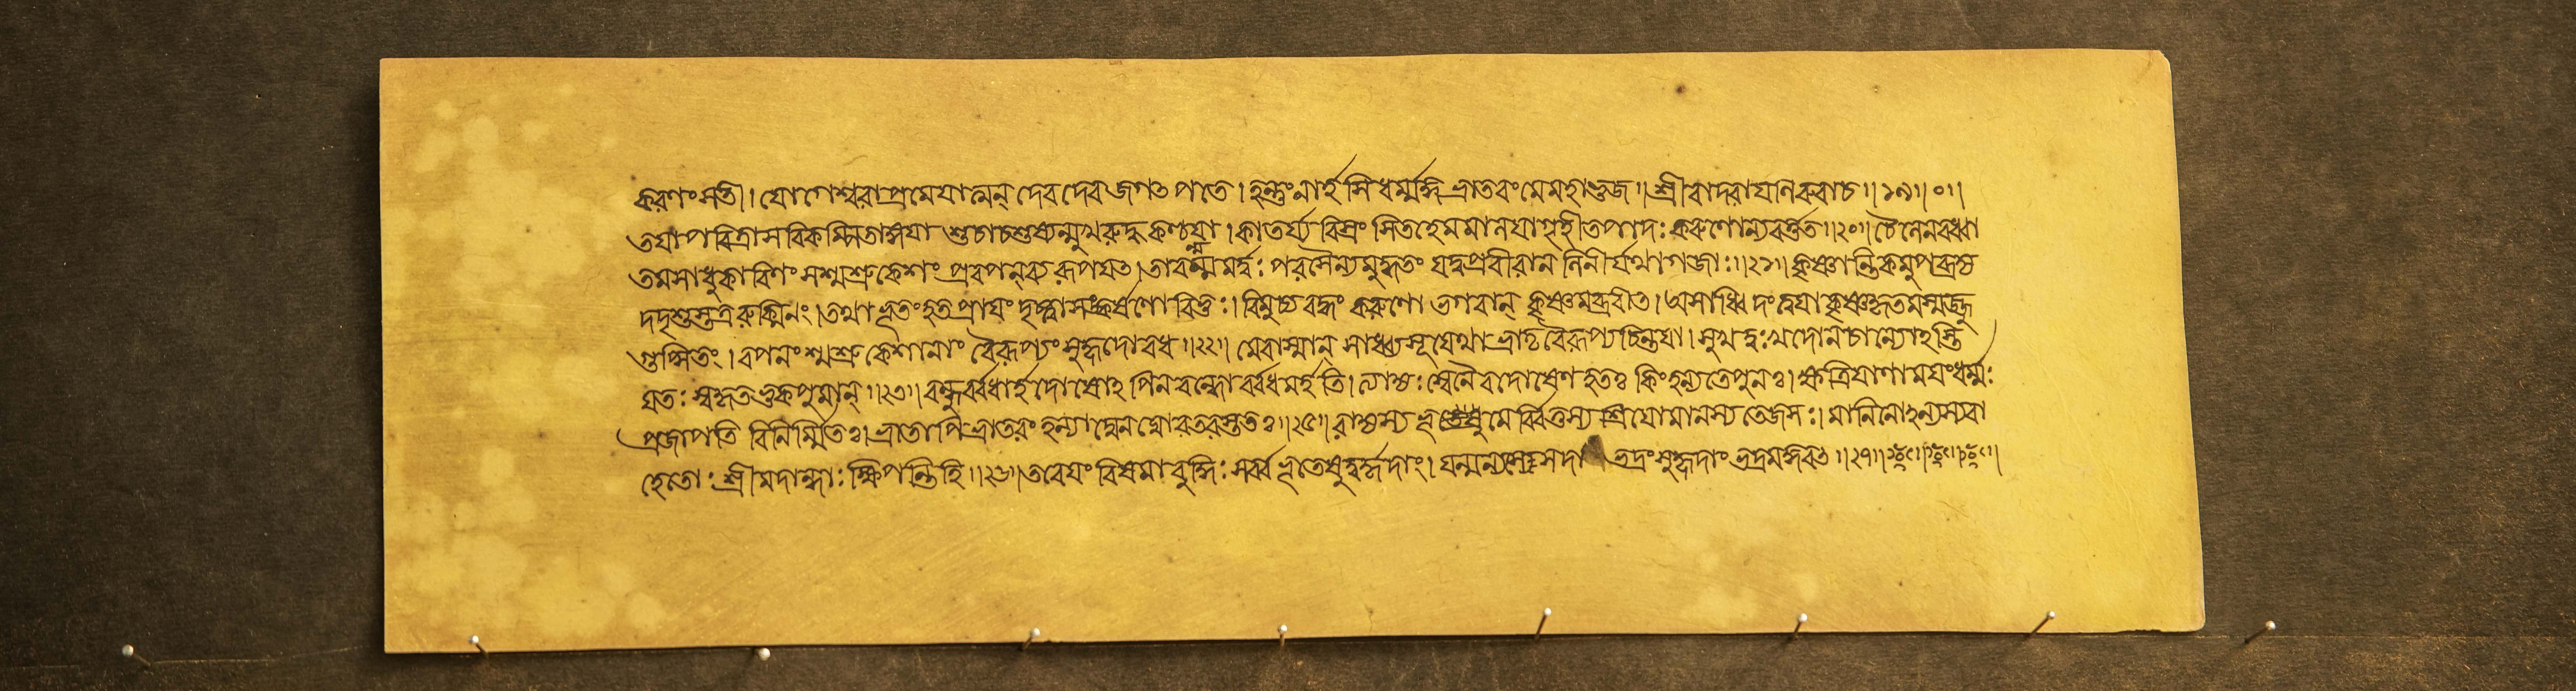 করুণং সতী। যোগেশ্বরাপ্রমেযাত্মন্ দেব দেব জগৎ পতে। হন্তুং নার্হ সি ধর্ম্মজ্ঞি ভ্রাতরং মে মহাভুজ॥ শ্রীবাদরাযনিরুবাচ॥১৯॥০॥
তযা পরিত্রাস বিকম্পিতাঙ্গযা শুচাচশুষ্যন্মুখরুদ্ধ কণ্ঠযা। কাতর্য্য বিস্রং সিতহেমমালযা গৃহীতপাদঃ করুণোন্যবর্ত্তত॥২০॥ চৈলেনবদ্ধা
তমসাধুকারিণং সশ্মশ্রু কেশং প্রবপন্ ব্যরূপযৎ। তাবন্মমর্দ্দুঃ পরসৈন্যমুদ্ভতং যদুপ্রবীরান নিনীর্যথাগজাঃ॥২১॥ কৃষ্ণান্তিকমুপব্রজ্য
দদৃশুস্তত্র রুক্মিনং। তথা ভূতং হতপ্রাযং দৃষ্ট্বাসঙ্কর্ষণো বিভুঃ। বিমুচ্য বদ্ধং করুণো ভগবান্ কৃষ্ণমব্রবীত। অসাধ্বি দং ত্বযা কৃষ্ণকৃতমস্মজ্জু
গুপ্সিতং। বপনং শ্মশ্রু কেশানাং বৈরূপ্যং সুহৃদোবধ॥২২॥ মৈবাস্মান্ সাধ্ব্যসূযেথা ভ্রাতৃ বৈরূপ্যচিন্তযা। সুখদুঃখদোনচান্যোহস্তি
যতঃ স্বকৃতভুকপুমান্॥২৩॥ বন্ধুর্বধার্হদোষোহ পিনবন্ধো বর্বধমর্হতি। ত্যাজ্যঃ স্বেনৈবদোষেণ হতঃ কিং হন্যতেপুনঃ। ক্ষত্রিযাণামযংধর্ম্মঃ
প্রজাপতি বিনির্ম্মিতঃ। ভ্রাতাপি ভ্রাতরং হন্যাদ্যেন ঘোরতরস্ততঃ॥২৫॥ রাজ্যস্য ভূমের্বিত্তস্য শ্রিযোমানস্য তেজসঃ। মানিনোহন্যস্যবা
হেতোঃ শ্রীমদান্ধাঃ ক্ষিপন্তিহি॥২৬॥ তবেযং বিষমা বুদ্ধিঃ সর্ব্ব ভূতেষুদুর্হৃদাং। যন্মন্যসে সদা ভদ্রং সুহৃদাং ভদ্রমজ্ঞবৎ॥২৭॥